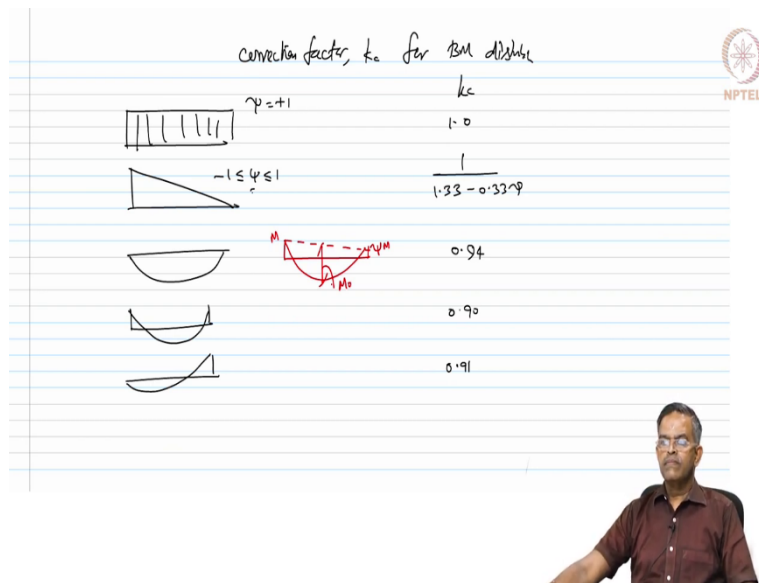 correction factor, kc for BM distribu
NPTEL
kc
ψ = +1
1.0
-1 ≤ ψ ≤ 1
1
1.33 - 0.33ψ
M
ψM
0.94
M0
0.90
0.91